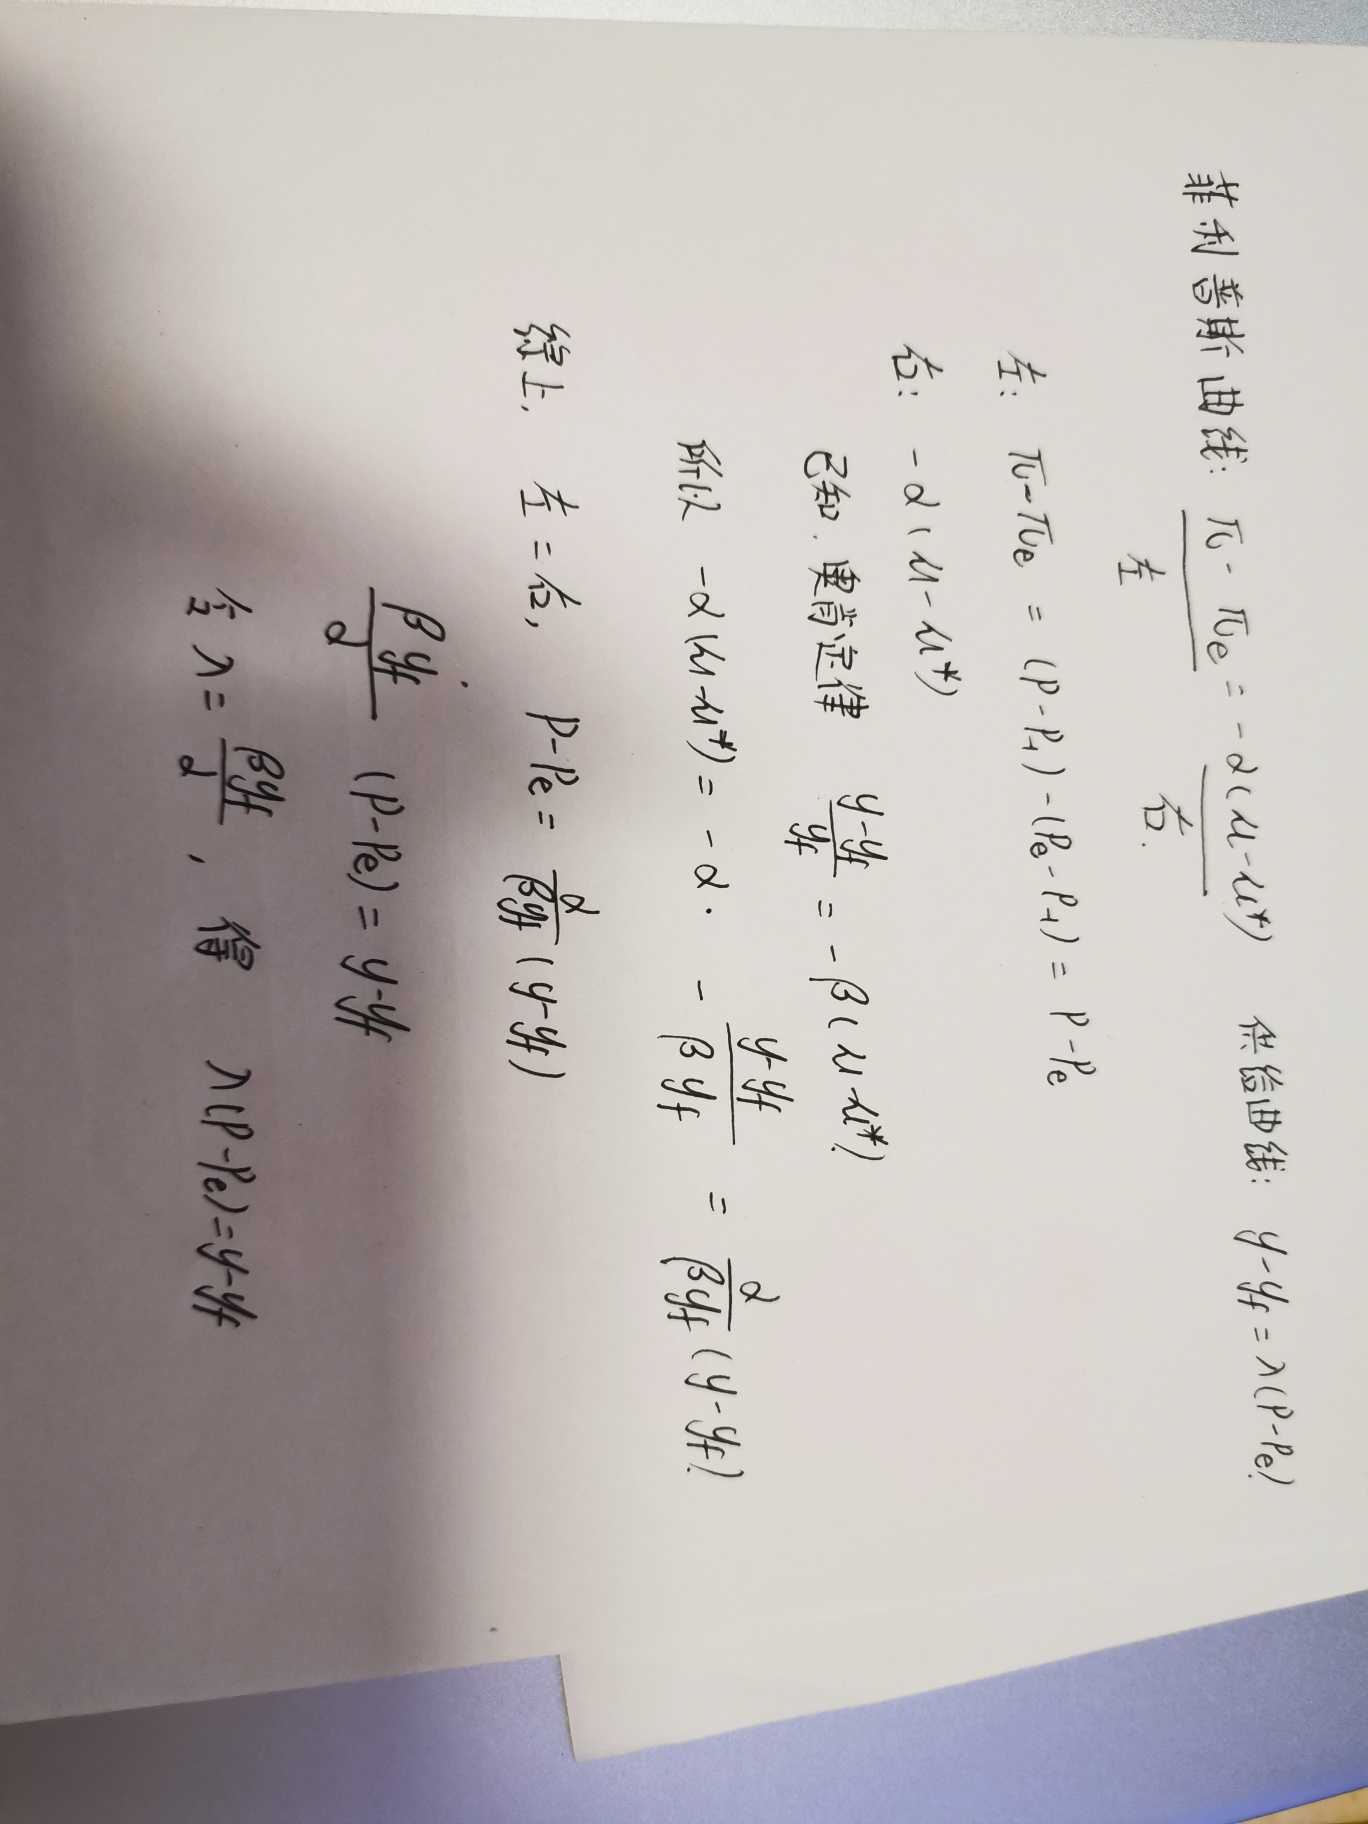 菲利普斯曲线: π - πe = -α(μ-μ*) 供给曲线: y-yf = λ(P-Pe)
左 右.
左: π-πe = (P-P-1) - (Pe-P-1) = P-Pe
右: -α(μ-μ*)
已知. 奥肯定律 (y-yf)/yf = -β(μ-μ*)
所以 -α(μ-μ*) = -α· - (y-yf)/(βyf) = α/(βyf) (y-yf)
综上, 左=右, P-Pe = α/(βyf) (y-yf)
βyf/α (P-Pe) = y-yf
令 λ = βyf/α , 得 λ(P-Pe) = y-yf